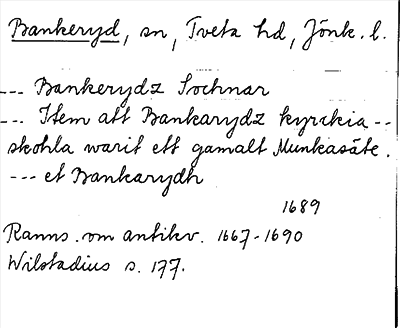 Bankeryd, sn, Tveta hd, Jönk. l.
--- Bankerydz Sochnar
--- Item att Bankarydz kyrckia --
skohla warit ett gamalt Munkasäte.
--- et Bankarydh
1689
Ranns. om antikv. 1667-1690
Wilstadius s. 177.